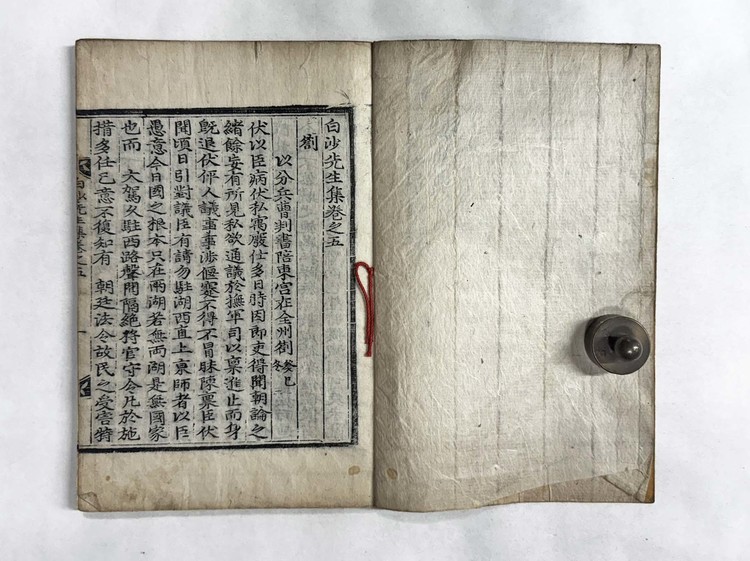 白沙先生集卷之五
劄
以分兵曹判書陪東宮在全州劄癸巳冬
伏以臣病伏私寓廢仕多日時因郎吏得聞朝論之
緖餘妄有所見私欲通議於撫軍司以稟進止而身
旣退伏俾人議事事涉偃蹇不得不冒昧陳稟臣伏
聞頃日引對議臣有請勿駐湖西直上京師者以臣
愚意今日國之根本只在兩湖若無兩湖是無國家
也而 大駕久駐西路聲聞隔絶將官守令凡於施
措多任己意不復知有 朝廷法令故民之受害特
白沙先生集卷之五